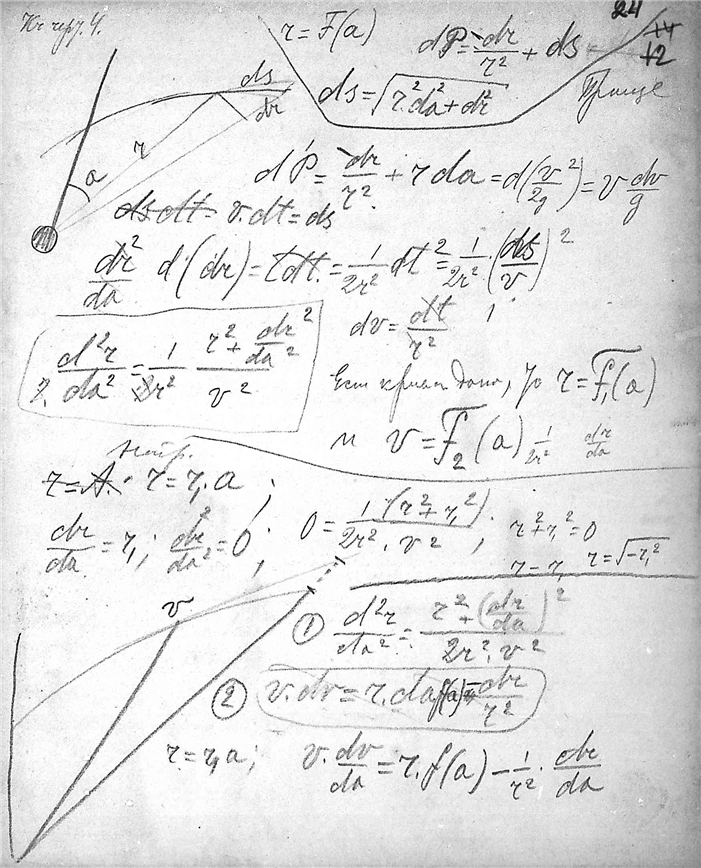 24
14
12
r = F(a)
dP = dr/r² + ds
ds = √(r²da² + dr²)
Проще
ds
dr
r
a
dP = dr/r² + r da = d(v²/2g) = v dv/g
ds dt = v.dt = ds
dr²/da d(dr) = tdt. = 1/2r² dt² = 1/2r² . (ds/v)²
dv = dt/r²
d²r/da² = 1/2r² (r² + dr²/da²)/v²
Если кривая дана, то r = F₁(a)
и v = F₂(a) 1/2r² dr/da
r = A. r = r₁ a ;
dr/da = r₁ ; dr²/da² = 0 ; 0 = 1(r² + r₁²)/2r² . v² ; r² + r₁² = 0
r = √-r₁²
v
① d²r/da² = (r² + (dr/da)²)/2r² . v²
② v.dv = r.da f(a) - dr/r²
r = r₁a ; v. dv/da = r. f(a) - 1/r² . dr/da